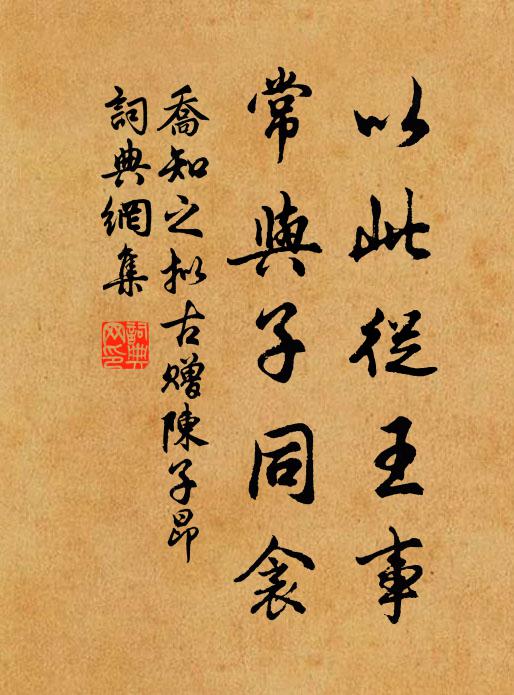 以此從王事
常與子同衾
喬知之擬古贈陳子昂
詞典網集
詞典网印